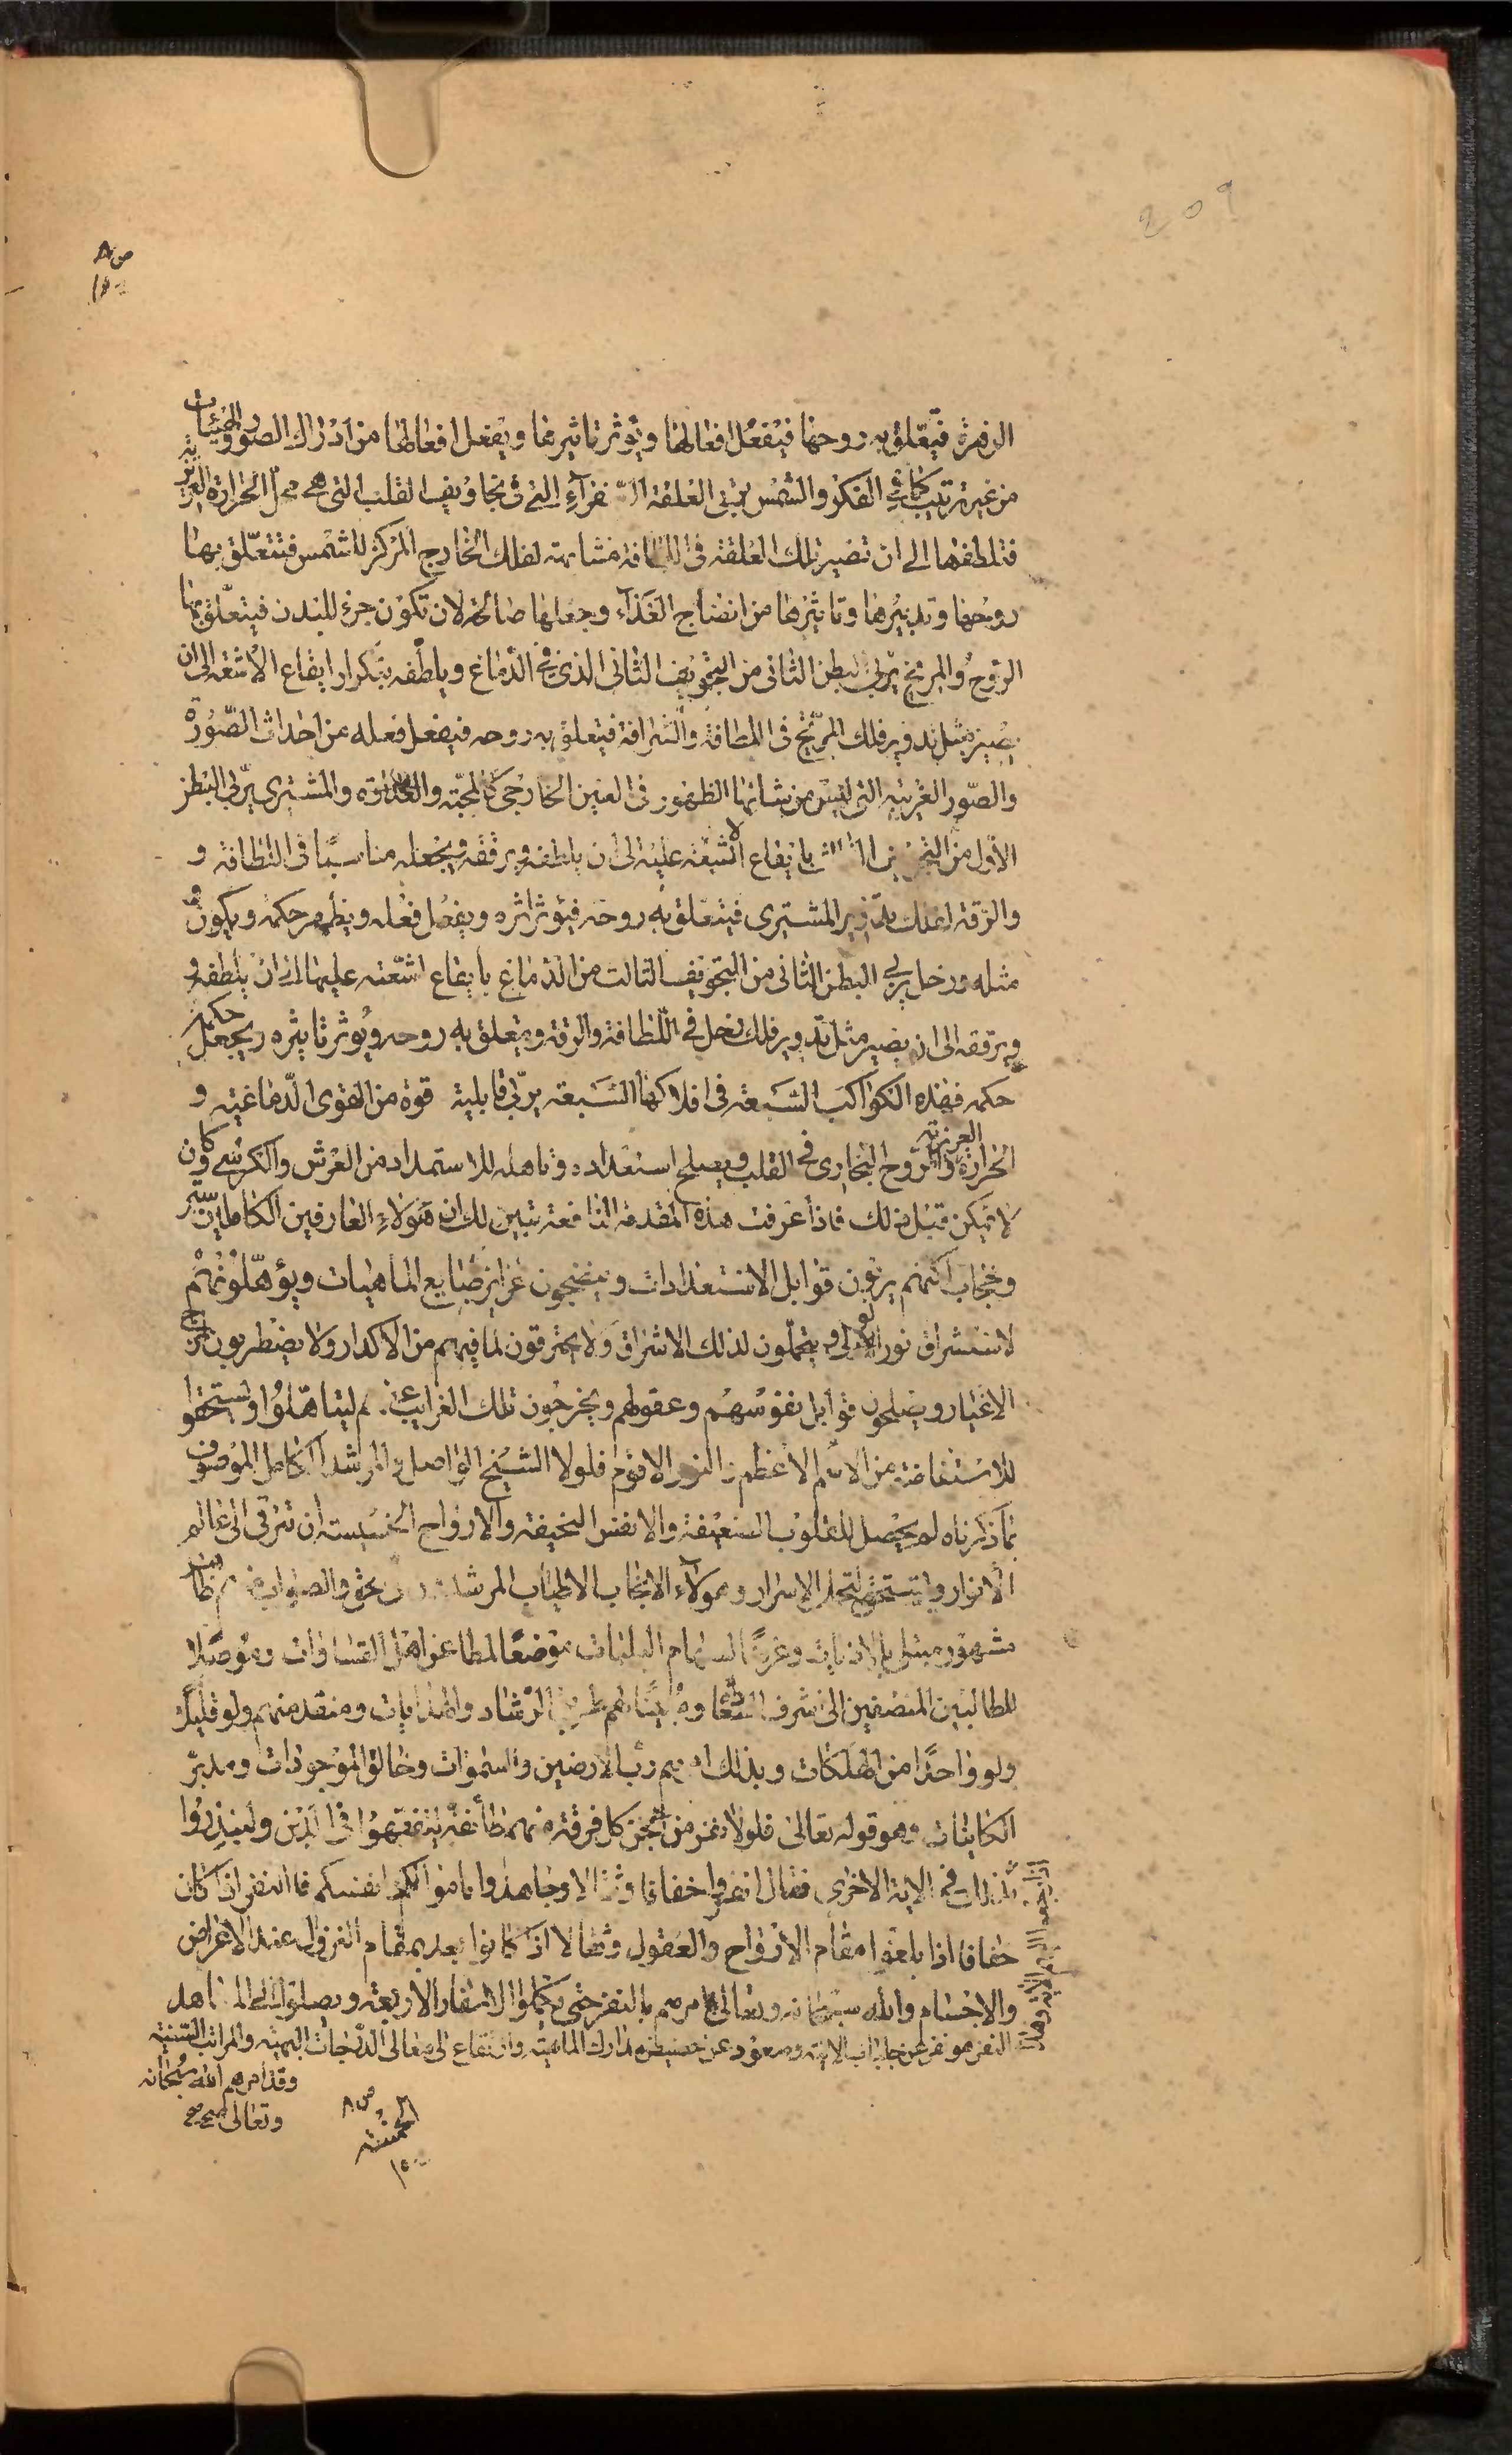 209
ص ٨
١٥٠
الزهرة فيتعلق به روحها فيفعل افعالها ويؤثر تاثيرها ويفعل افعالها من ادراك الصور والهيئات
من غير ترتيب كما في الفكر والشمس تربي العلقة الصفرآء التي في تجاويف القلب التي هي محل الحرارة الغريزية
فتلطفها الى ان تصير تلك العلقة في اللطافة مشابهة لفلك الخارج المركز للشمس فتتعلق بها
روحها وتدبيرها وتاثيرها من انضاج الغذآء وجعلها صالحة لان تكون جزء للبدن فيتعلق بها
الروح والمريخ يربي البطن الثاني من التجويف الثاني الذي في الدماغ ويلطفه بتكرار ايقاع الاشعة الى ان
يصير مثل تدوير فلك المريخ في اللطافة والشرافة فيتعلق به روحه فيفعل فعله من احداث الصورة
والصور الغريبة التي ليس من شانها الظهور في العين الخارجي كالمحبة والعداوة والمشتري يربي البطن
الأول من التجويف الثالث بايقاع الاشعة عليه الى ان يلطفه ويرققه ويجعله مناسبا في اللطافة و
والرقة لفلك تدوير المشتري فيتعلق به روحه فيؤثر اثره ويفعل فعله ويظهر حكمه ويكون
مثله وزحل يربي البطن الثاني من التجويف الثالث من الدماغ بايقاع اشعته عليها الى ان يلطفه و
ويرققه الى ان يصير مثل تدوير فلك زحل في اللطافة والرقة ويتعلق به روحه ويؤثر تاثيره ويجعل حكمه
حكمه فهذه الكواكب السبعة في افلاكها السبعة يربي قابلية قوة من القوى الدماغية و
الحرارة الغريزية والروح البخاري في القلب ويصلح استعداده وتاهله للاستمداد من العرش والكرسي كاون
لا تمكن قبل ذلك فاذا عرفت هذه المقدمة النافعة تبين لك ان هؤلاء العارفين الكاملين
وحجاب ائمتهم يربون قوابل الاستعدادات وينضجون غرايز طبايع الماهيات ويؤهلونهم
لاستشراق نور المولى ويتحملون لذلك الاشراق ولا يحترقون لما فيهم من الاكدار ولا يضطربون
الاغيار ويصلحون قوابل نفوسهم وعقولهم ويخرجون تلك الغرايب عنهم ليتاهلوا ويستحقوا
للاستفاضة من الاسم الاعظم والنور الاقوم فلولا الشيخ الواصل والمرشد الكامل الموصوف
بما ذكرناه لم يحصل للقلوب الضعيفة والانفس النحيفة والارواح الخسيسة ان تترقى الى عالم
الانوار ويستحق لتحمل الاسرار وهولآء الانجاب الاطياب المرشدون الى الحق والصواب
مشهور مبتلى بالاذيات وغرضا لسهام البليات موضعا لمطاعن اهل الشقاوات وموصلا
للطالبين المنصفين الى شرف السعادة ومبينا لهم طريق الرشاد والهدايات ومنقذ منهم ولو قليلا
ولو واحدا من الهلكات وبذلك امرهم رب الارضين والسموات وخالق الموجودات ومدبر
الكاينات وهو قوله تعالى فلولا نفر من كل فرقة منهم طائفة ليتفقهوا في الدين ولينذروا
كذلك في الاية الاخرى فقال انفروا خفافا وثقالا وجاهدوا باموالكم وانفسكم فالنفر ان كان
خفافا اذا بلغوا مقام الأرواح والعقول وثقالا اذا كانوا بعد بمقام الفرق عند الاغراض
والاجسام والله سبحانه وتعالى امرهم بالنفر حتى يكملوا الاسفار الاربعة ويصلوا الى
النفر هو نفر عن جلباب الانية وصعود عن حضيض مدارك الماهية وارتفاع الى معالى الدرجات البهية والمراتب السنية
وقد امرهم الله سبحانه
وتعالى صح
ص ٨
١٥٠